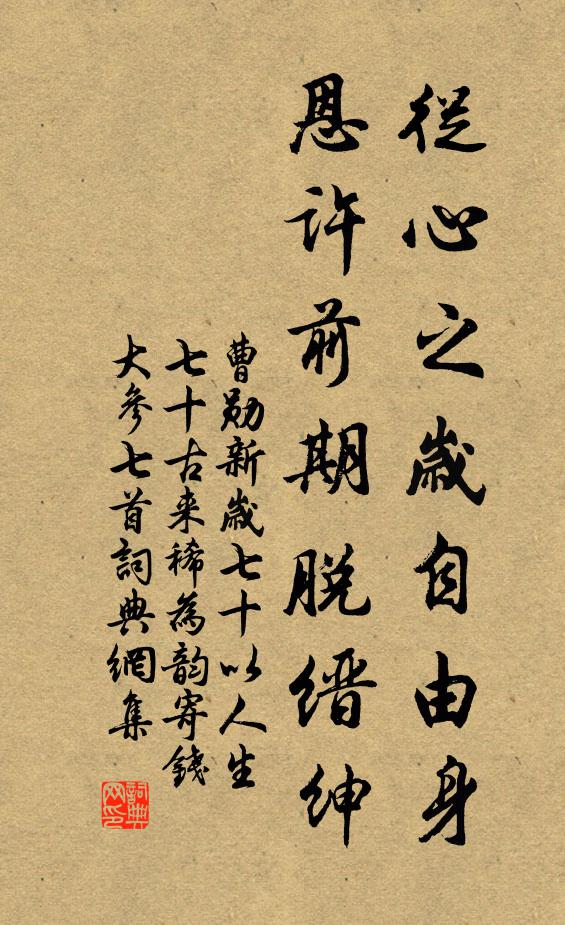 從心之歲自由身
恩許前期脫縉紳
曹勛新歲七十以人生
七十古來稀為韵寄錢
大參七首詞典網集
詞典网印